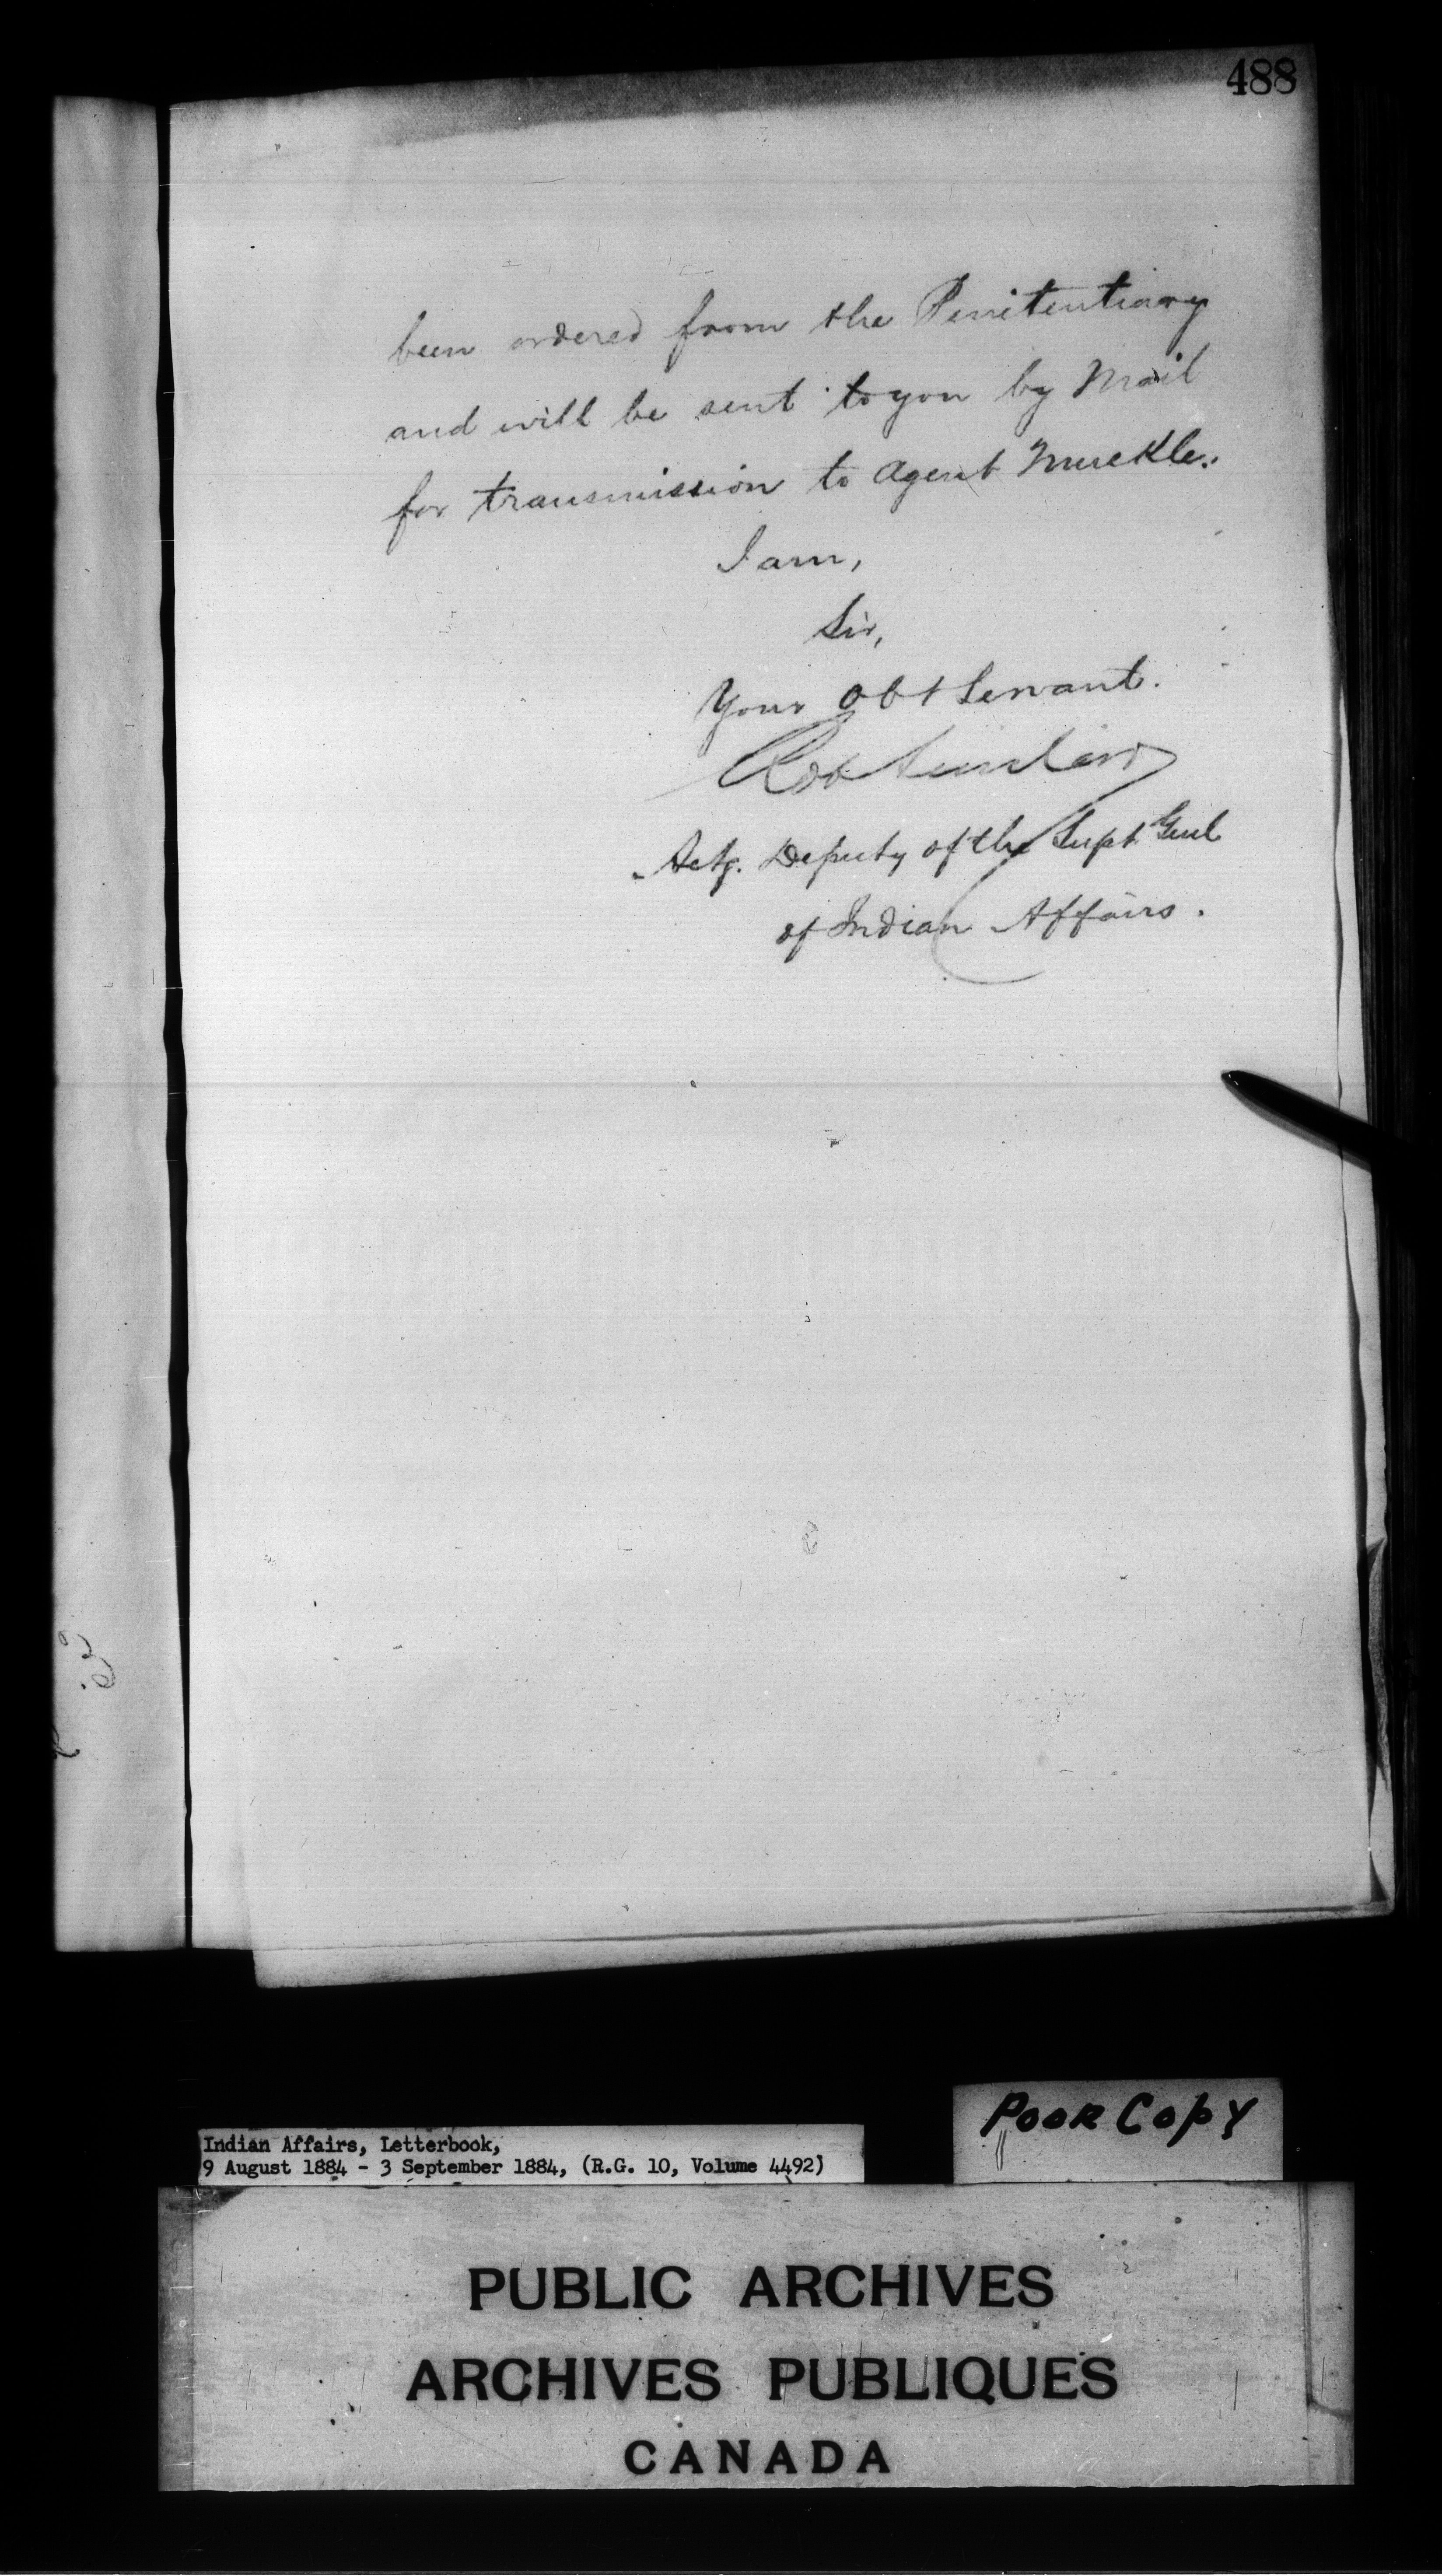 488
been ordered from the Penitentiary
and will be sent to you by Mail
for transmission to Agent Muckle.
I am,
Sir,
Your Obt Servant.
Rob Sinclair
Actg. Deputy of the Supt Genl
of Indian Affairs.
Poor Copy
Indian Affairs, Letterbook,
9 August 1884 - 3 September 1884, (R.G. 10, Volume 4492)
PUBLIC ARCHIVES
ARCHIVES PUBLIQUES
CANADA